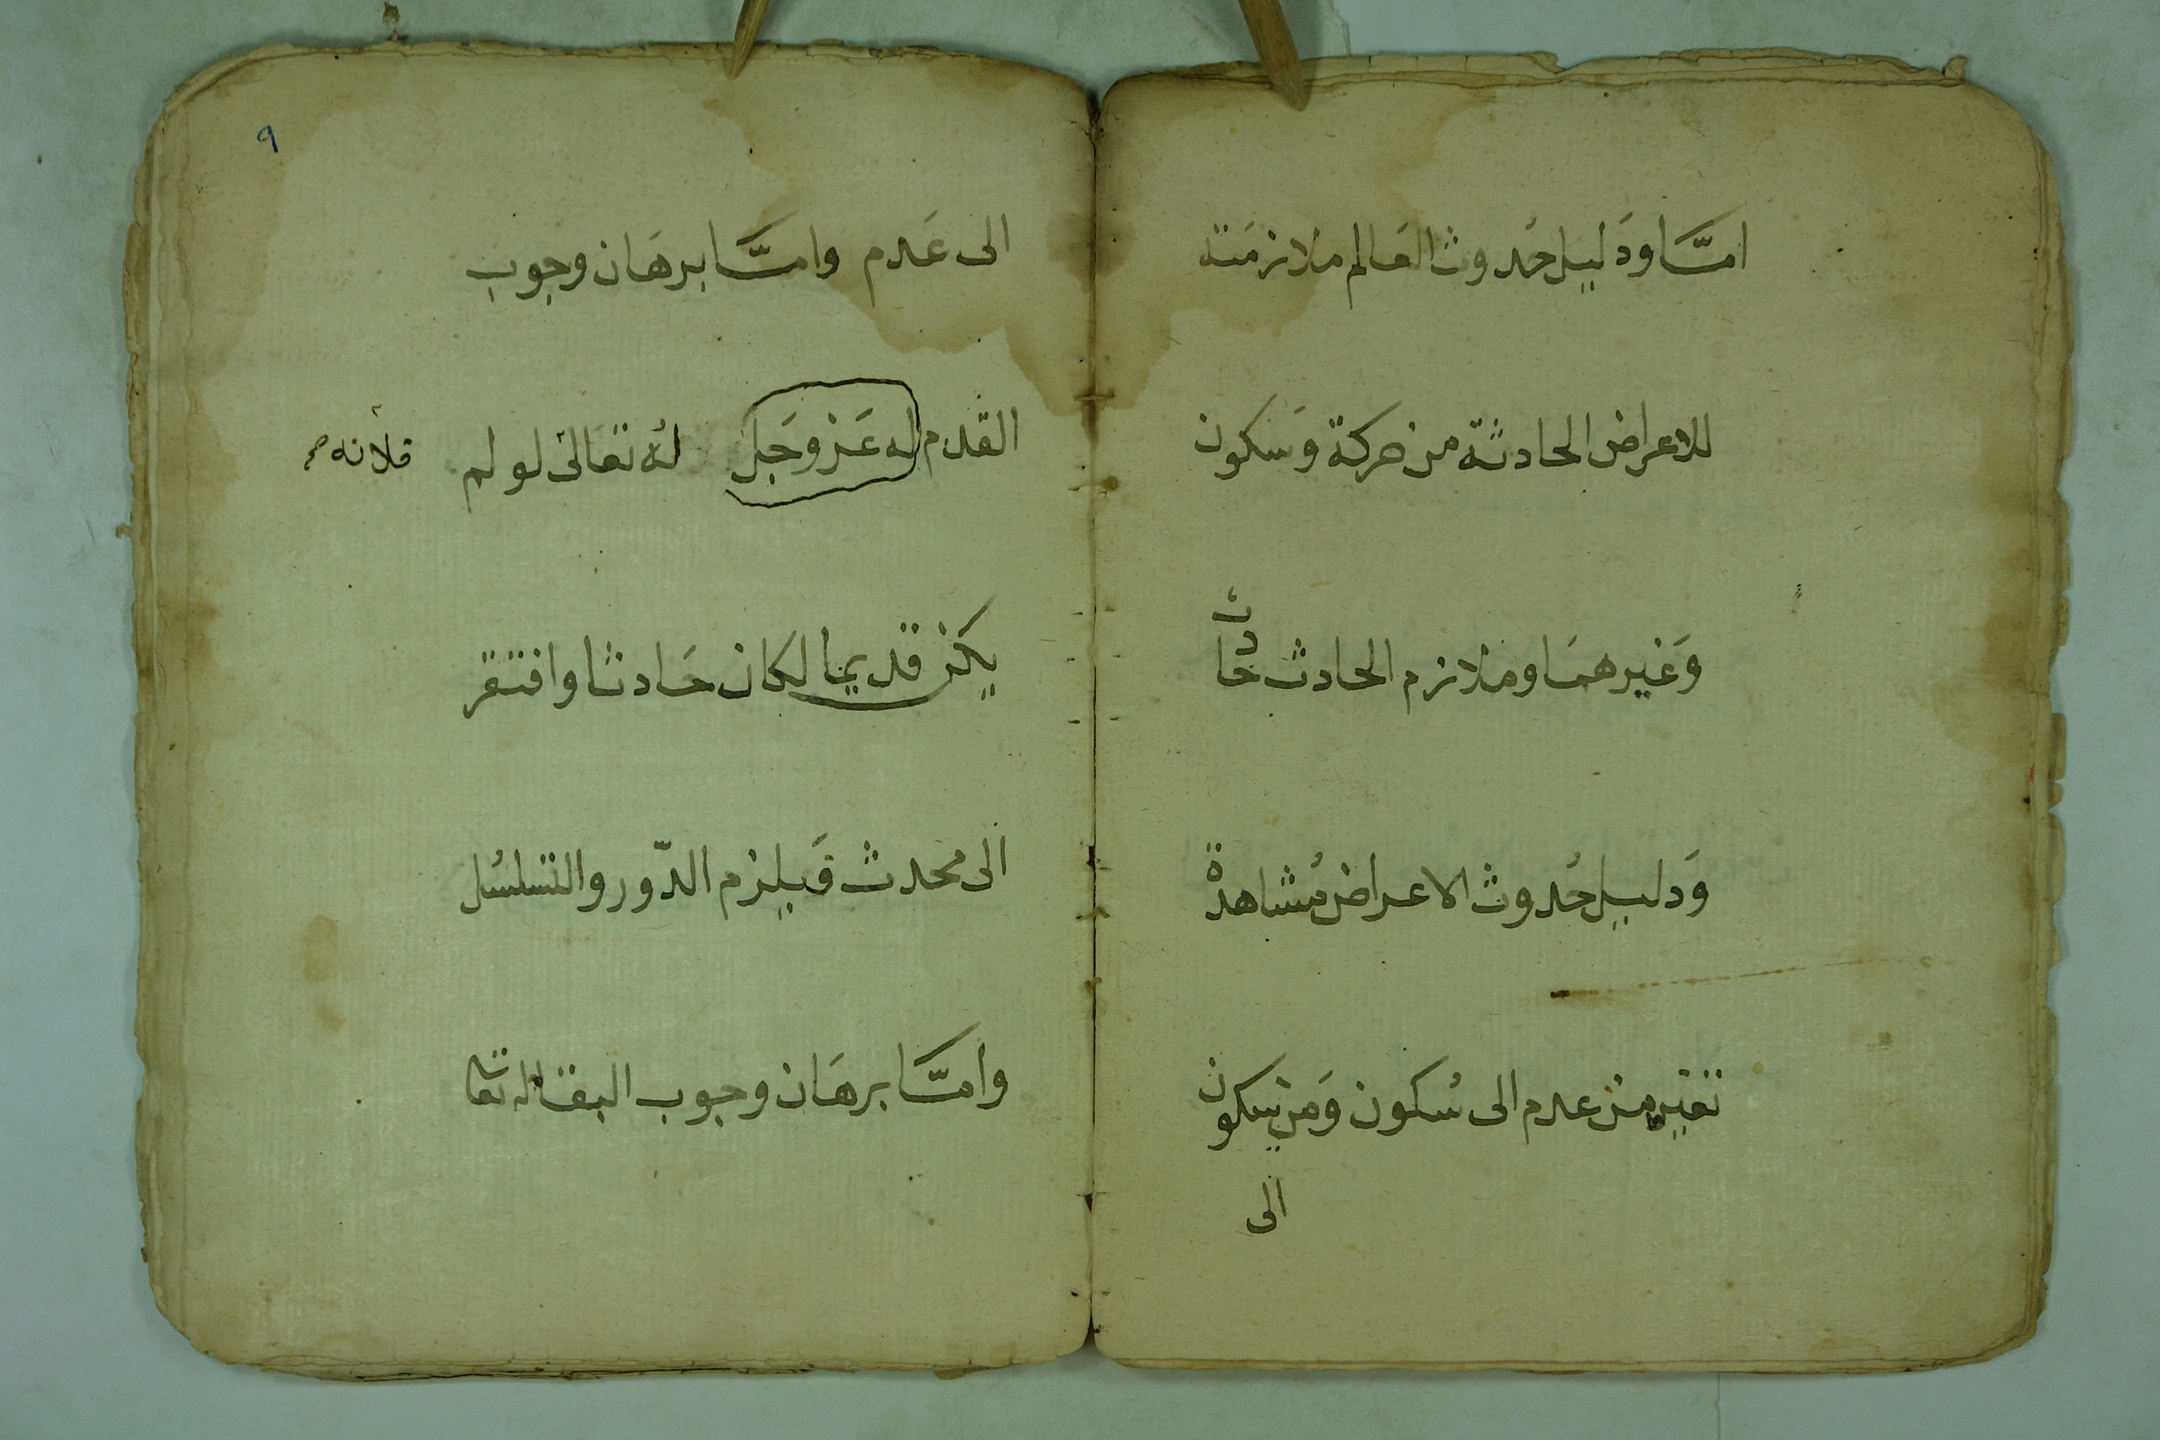 امّا ودَليل حُدوث العَالم ملازمَتة
للاعراض الحادثة من حركة وَسكون
وَغيرهمَا وملازم الحادث حَادث
وَدليل حُدوث الاعراض مُشاهدة
تغير من عدم الى سُكون وَمن سكون
الى
٩
الى عَدم وامّا برهَان وجوب
القدم له عَز وجَل له تعَالى لو لم
فلأنه
يكن قديما لكان حَادثا وافتقر
الى محدث فَيلزم الدّور والتسلسُل
وامّا برهَان وجوب البقا له تعا